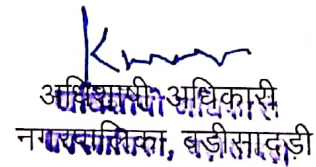 अधिशाषी अधिकारी
नगरपालिका, बड़ीसादड़ी